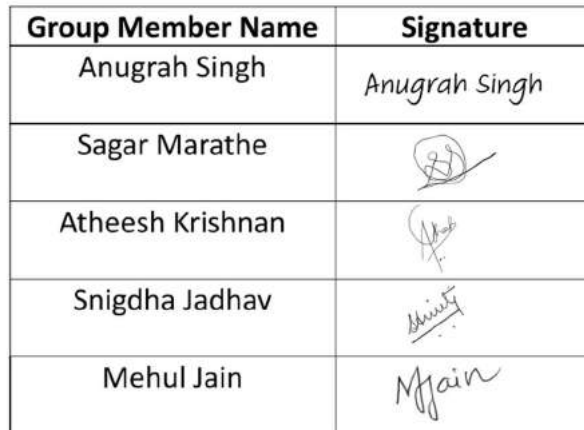 Group Member Name Signature
Anugrah Singh Anugrah Singh
Sagar Marathe
Atheesh Krishnan
Snigdha Jadhav
Mehul Jain MJain